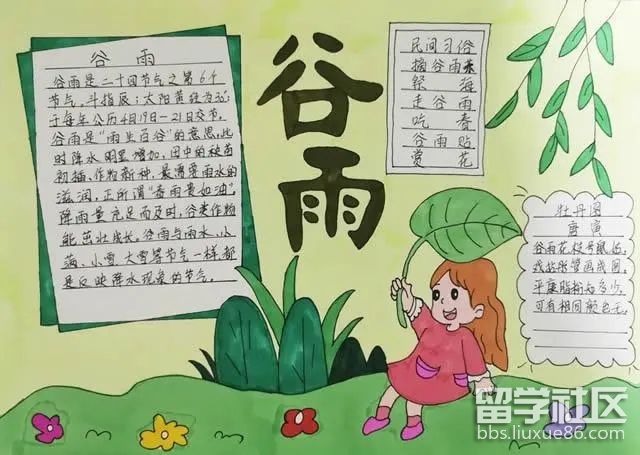 谷雨
谷雨是二十四节气之第6个
节气。斗指辰；太阳黄经为30°；
于每年公历4月19-21日交节。
谷雨是“雨生百谷”的意思,此
时降水明显增加,田中的秧苗
初插、作物新种,最需要雨水的
滋润,正所谓“春雨贵如油”。
降雨量充足而及时,谷类作物
能茁壮成长。谷雨与雨水、小
满、小雪、大雪等节气一样,都
是反映降水现象的节气。
谷雨
民间习俗
摘谷雨茶
祭海
走谷雨
吃春
谷雨贴
赏花
牡丹图
唐寅
谷雨花枝号鼠姑,
戏拈彤管画成图。
平康脂粉知多少,
可有相同颜色无。
留学社区
bbs.liuxue86.com